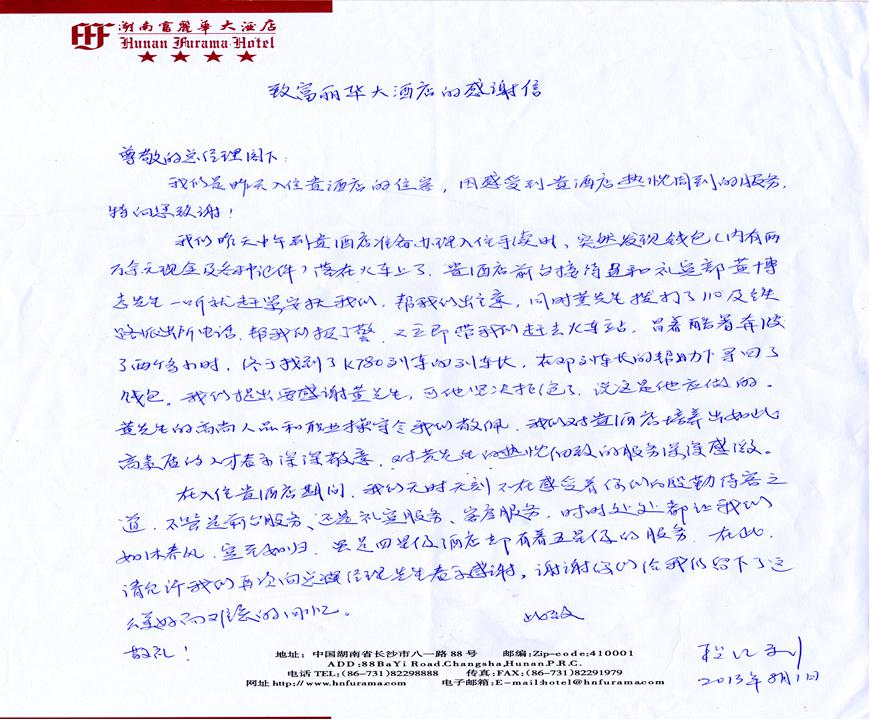 湖南富麗華大酒店
Hunan Furama Hotel
致富丽华大酒店的感谢信
尊敬的总经理阁下:
我们是昨天入住贵酒店的住客，因感受到贵酒店热忱周到的服务，
特向您致谢!
我们昨天中午到贵酒店准备办理入住手续时、突然发现钱包(内有两
万余元现金及各种证件)落在火车上了。贵酒店前台接待员和礼宾部黄博
先生一听就赶紧安抚我们，帮我们出主意，同时黄先生拨打了110及铁
路派出所电话，帮我们报了警，又立即带我们赶去火车站，冒着酷暑奔波
了两个多小时，终于找到了K780列车的列车长，在邓列车长的帮助下寻回了
钱包。我们提出要感谢黄先生，可他坚决拒绝了，说这是他应做的。
黄先生的高尚人品和职业操守令我们敬佩，我们对贵酒店培养出如此
高素质的人才表示深深敬意，对黄先生的热忱细致的服务深深感激。
在入住贵酒店期间，我们无时无刻不在感受着你们的殷勤待客之
道，不管是前台服务、还是礼宾服务、客房服务，时时处处都让我们
如沐春风，宾至如归，虽是四星级酒店却有着五星级的服务。在此，
请允许我们再次向总经理先生表示感谢，谢谢你们给我们留下了这
么美好而难忘的回忆。
此致
敬礼!
2013年8月1日
地址：中国湖南省长沙市八一路88号 邮编:Zip-code:410001
ADD:88BaYi Road.Changsha,Hunan,P.R.C.
电话TEL:(86-731)82298888 传真:FAX:(86-731)82291979
网址http://www.hnfurama.com 电子邮箱:E-mail:hotel@hnfurama.com